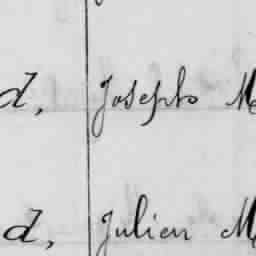 d, Joseph M
d, Julien M